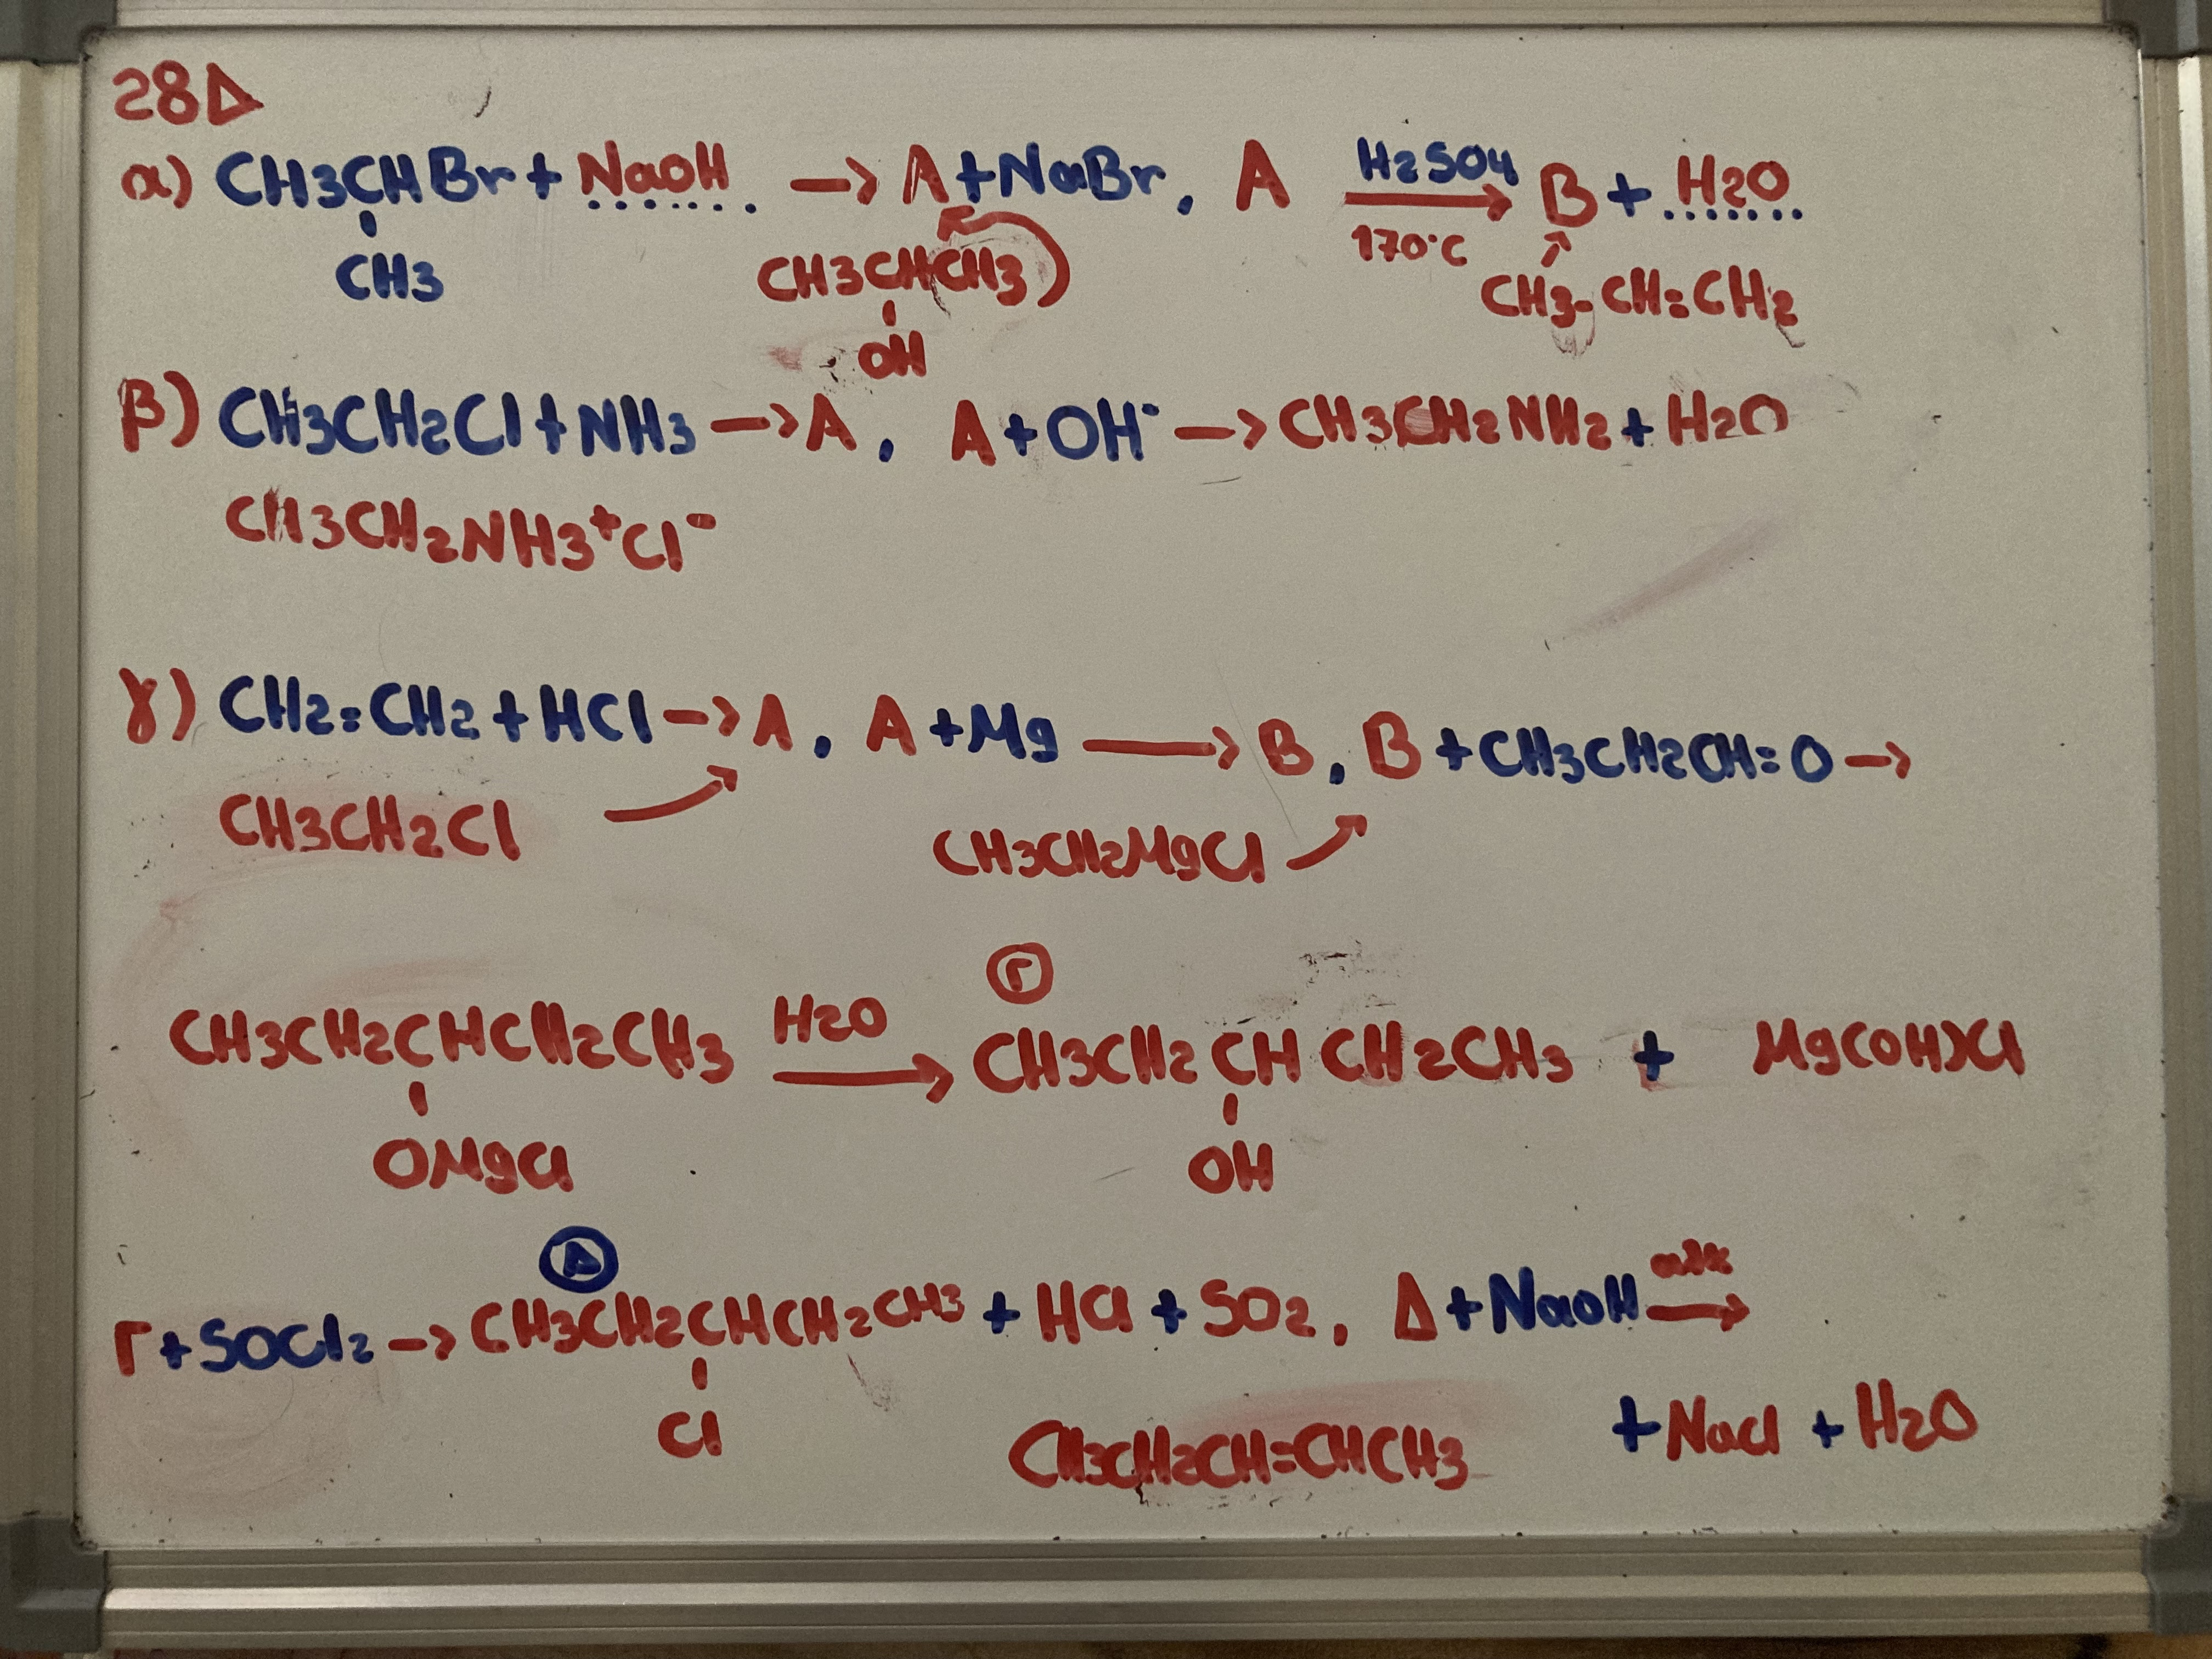 28Δ
α) CH3CHBr + NaOH → A + NaBr, A H2SO4 → 170°C B + H2O
CH3 CH3CHCH3 CH3-CH=CH2
OH
β) CH3CH2Cl + NH3 → A, A + OH⁻ → CH3CH2NH2 + H2O
CH3CH2NH3⁺Cl⁻
γ) CH2=CH2 + HCl → A, A + Mg → B, B + CH3CH2CH=O →
CH3CH2Cl CH3CH2MgCl
Γ
CH3CH2CHCH2CH3 H2O → CH3CH2CHCH2CH3 + Mg(OH)Cl
OMgCl OH
Δ
Γ + SOCl2 → CH3CH2CHCH2CH3 + HCl + SO2, Δ + NaOH αλκ →
Cl CH3CH2CH=CHCH3 + NaCl + H2O